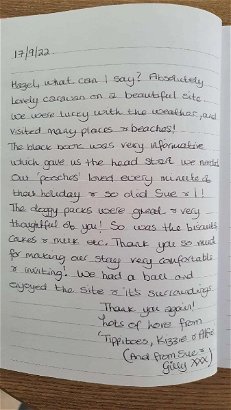 17/9/22
Hazel, what can I say? Absolutely
lovely caravan on a beautiful site.
We were lucky with the weather, and
visited many places & beaches!
The black book was very informative
which gave us the head start we needed.
Our 'pooches' loved every minute of
their holiday & so did Sue & I!
The doggy packs were great & very
thoughtful of you! So was the biscuits,
cakes & milk etc. Thank you so much
for making our stay very comfortable
& inviting! We had a ball and
enjoyed the site & it's surroundings.
Thank you again!
Lots of love from
Tippitoes, Kizzie & Alfie
(And from Sue &
Gilly xxx)